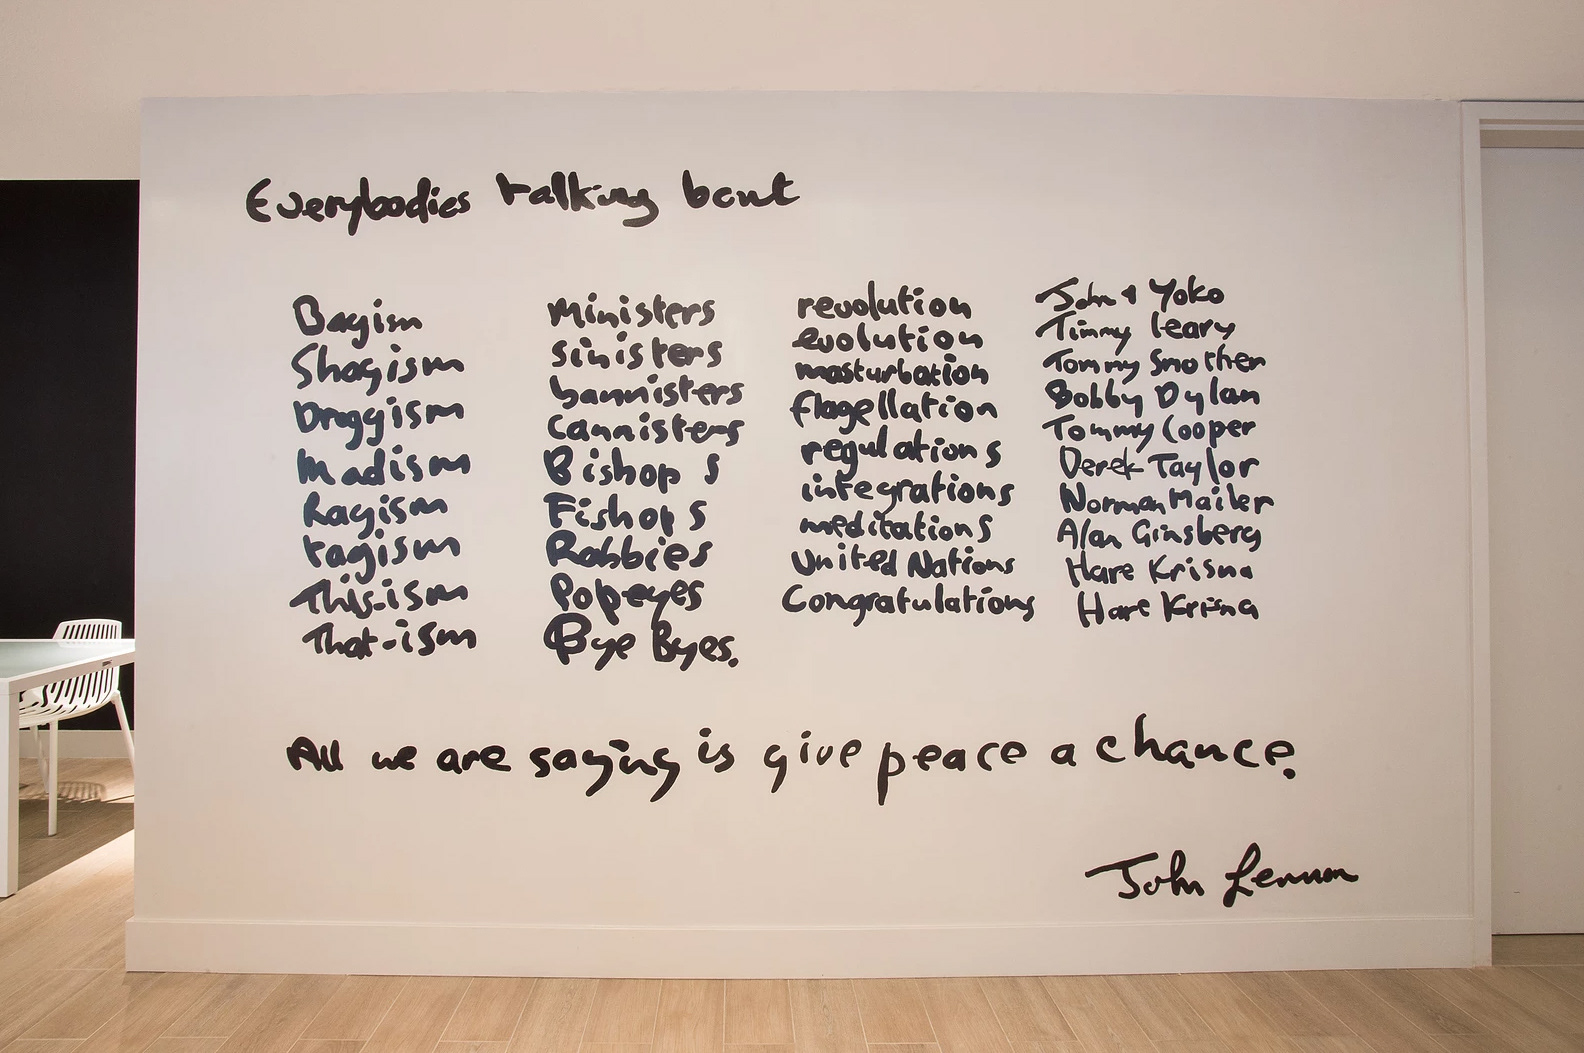 Everybodies talking bout
Bagism
Shagism
Draggism
Madism
Ragism
tagism
This-ism
That-ism
Ministers
sinisters
bannisters
Cannisters
Bishop s
Fishop s
Rabbies
Popeyes
Bye Byes.
revolution
evolution
masturbation
flagellation
regulations
integrations
meditations
United Nations
Congratulations
John & Yoko
Timmy leary
Tommy Smother
Bobby Dylan
Tommy Cooper
Derek Taylor
Norman Mailer
Alan Ginsberg
Hare Krisna
Hare Krisna
All we are saying is give peace a chance.
John Lennon